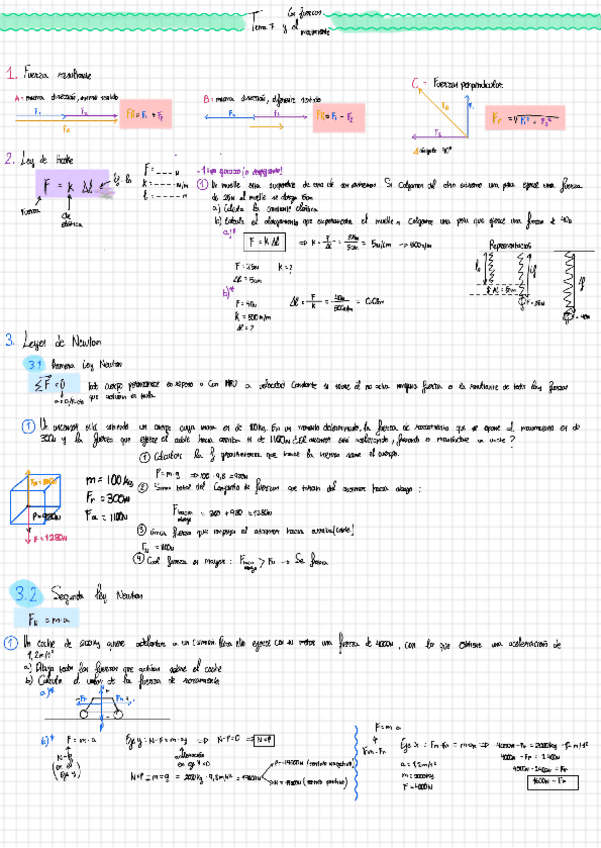 Tema 7 Las fuerzas y el movimiento
1. Fuerza resultante
A = misma dirección, mismo sentido
F₁ F₂
FR
FR = F₁ + F₂
B = misma dirección, diferente sentido
F₂ F₁
FR = F₁ - F₂
C - Fuerzas perpendicular
FR
F₁
F₂
ángulo 90°
Fr = √F₁² + F₂²
2. Ley de Hooke
F = k Δl
Fuerza
cte elástica
F = --- N
K = --- N/m
l = --- m
① Un muelle está suspendido de uno de sus extremos. Si colgamos del otro extremo una pesa ejerce una fuerza
de 25N el muelle se alarga 5cm
a) Calcula la constante elástica
b) Calcula el alargamiento que experimenta el muelle si colgamos una pesa que ejerce una fuerza de 40N
a)*
F = K Δl
⇒ K = F/Δl = 25N/5cm = 5N/cm → 500N/m
F = 25N K = ?
Δl = 5cm
b)*
F = 40N
K = 500N/m
Δl = ?
Δl = F/K = 40N/500N/m = 0,08m
Representación
Δl = 5cm
F = 25N
F = 40N
3. Leyes de Newton
3.1 Primera Ley Newton
ΣF = 0
todo cuerpo permanece en reposo o con MRU a velocidad constante si sobre él no actúa ninguna fuerza o la resultante de todas las fuerzas
que actúan es nula
① Un ascensor está subiendo un cuerpo cuya masa es de 100kg. En un momento determinado, la fuerza de rozamiento que se opone al movimiento es de
300N y la fuerza que ejerce el cable hacia arriba es de 1100N. ¿El ascensor está acelerando, frenando o manteniendo un MRU?
① Calcular la f gravitatoria que hace la tierra sobre el cuerpo.
P = m·g ⇒ 100·9,8 = 980N
m = 100kg
Fr = 300N
Fa = 1100N
P = 980N
F = 1280N
② Suma total del conjunto de fuerzas que tiran del ascensor hacia abajo:
F hacia abajo = 300 + 980 = 1280N
③ única fuerza que empuja el ascensor hacia arriba (cable)
= 1100N
④ Cual fuerza es mayor: F hacia abajo > Fa → Se frena
3.2 Segunda ley Newton
FR = m·a
① Un coche de 2000kg quiere adelantar a un camión. Para ello ejerce con su motor una fuerza de 4000N, con la que obtiene una aceleración de
1,2m/s²
a) Dibuja todas las fuerzas que actúan sobre el coche
b) Calcula el valor de la fuerza de rozamiento
a)*
Fr
Fm
b)* F = m·a
N-P
(en el eje y)
Eje y: N-P = m·ay ⇒ N-P = 0 ⇒ N=P
aceleración en eje y=0
N=P = m·g = 2000kg·9,8m/s² = 19600N
P = -19600N (sentido negativo)
N = 19600N (sentido positivo)
F = m·a
Fm-Fr
Eje x: Fm-Fr = m·ax ⇒ 4000N-Fr = 2000kg·1,2m/s²
a = 1,2m/s²
m = 2000kg
F = 4000N
4000N-Fr = 2400N
4000N-2400N = Fr
1600N = Fr